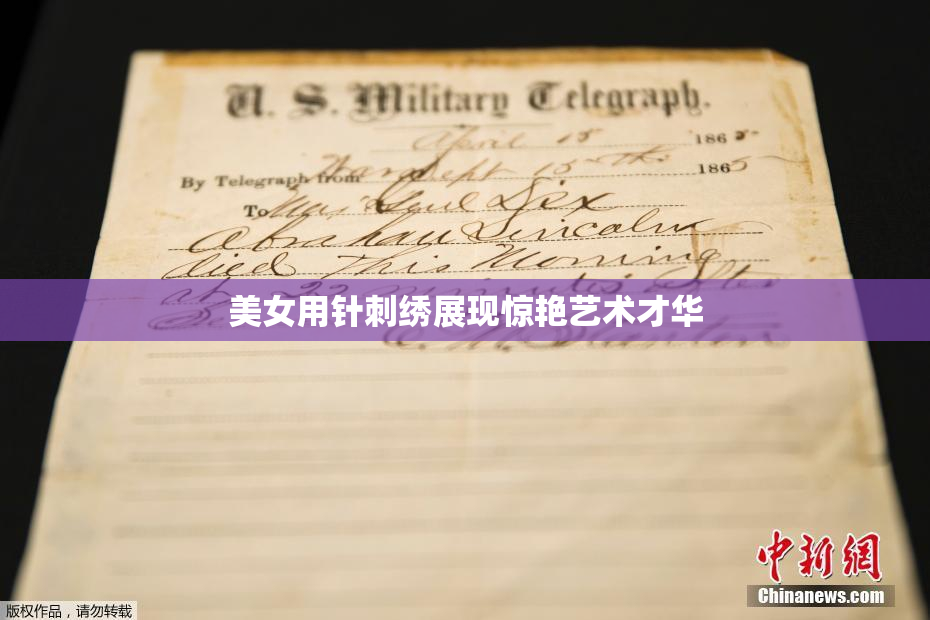 U. S. Military Telegraph.
April 15 1865
By Telegraph from War Dept 15th 1865
To Maj Genl Dix
Abraham Lincoln
died This Morning
at 22 minutes after
美女用针刺绣展现惊艳艺术才华
E. M. Stanton
中新网
Chinanews.com
版权作品，请勿转载